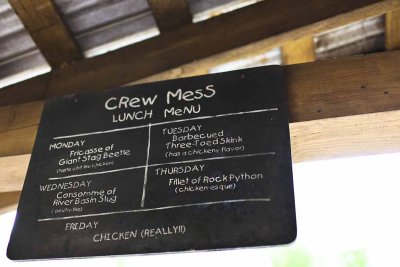 Crew Mess
LUNCH MENU
MONDAY
Fricasse of
Giant Stag Beetle
(tastes a bit like chicken)
TUESDAY
Barbecued
Three-Toed Skink
(has a chickeny flavor)
WEDNESDAY
Consomme of
River Basin Slug
THURSDAY
Fillet of Rock Python
(chicken-esque)
FRIDAY
CHICKEN (REALLY!!)